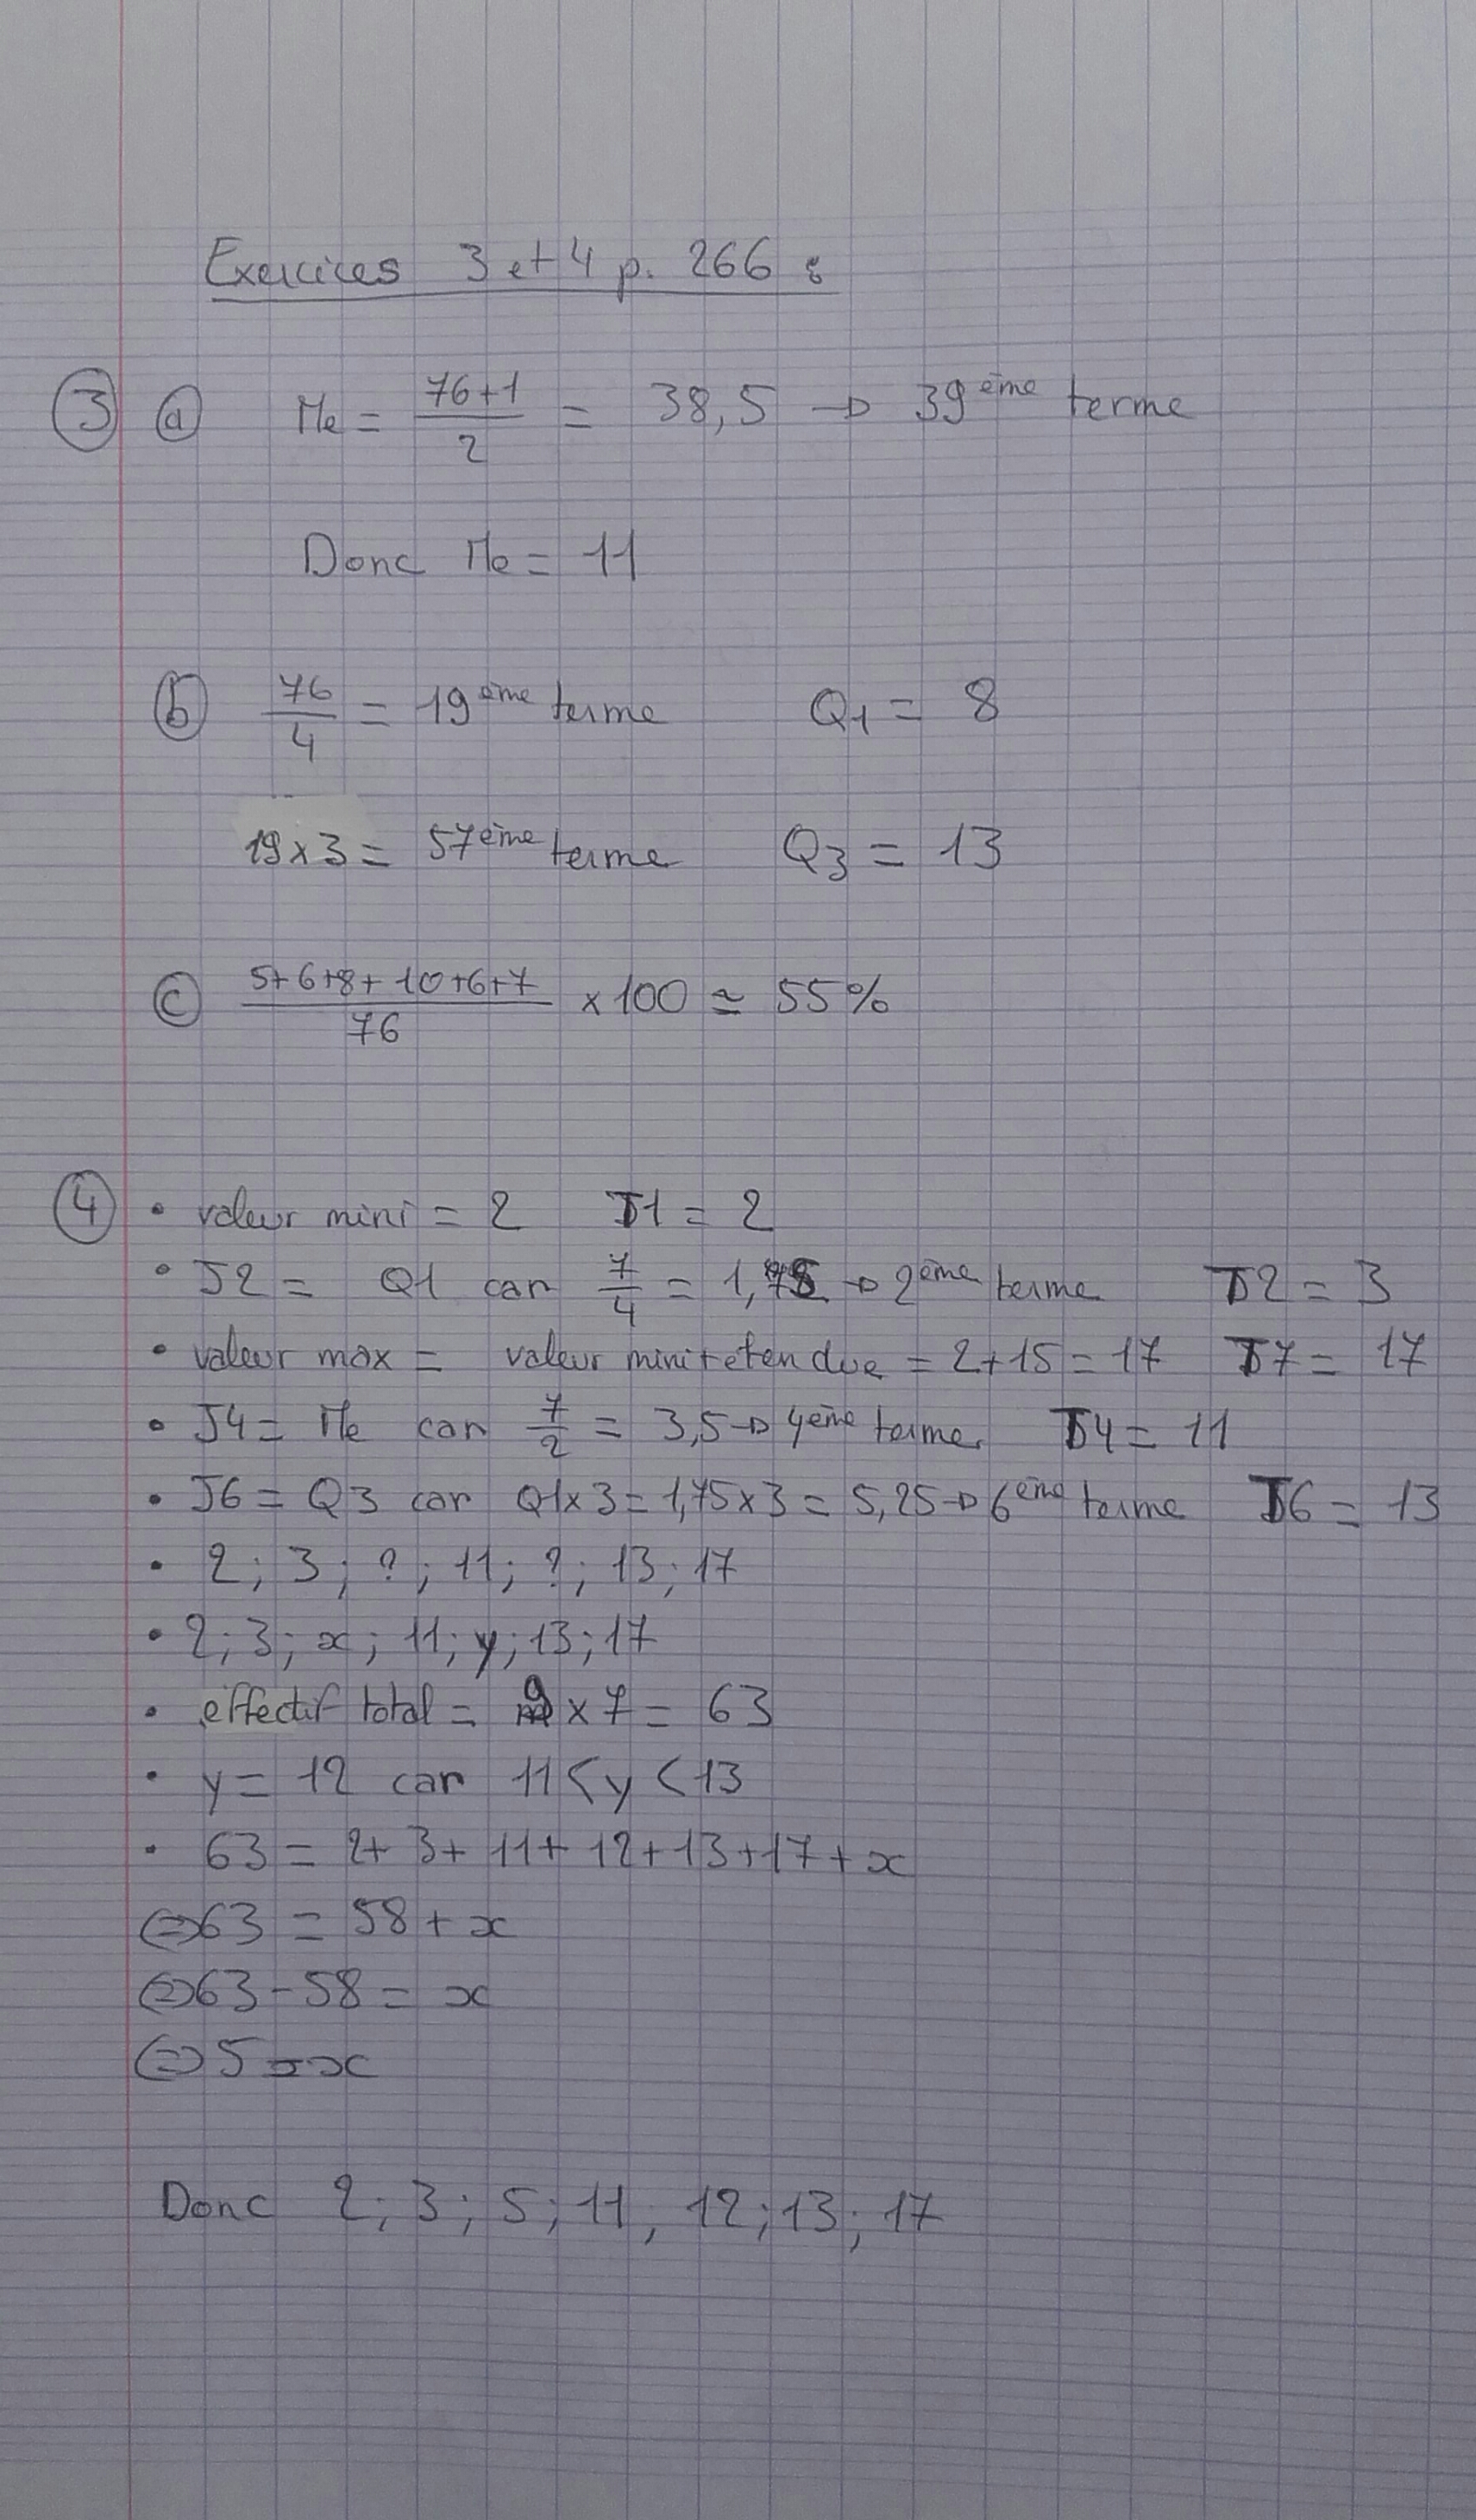 Exercices 3 et 4 p. 266 :
3 a Me = 76+1 / 2 = 38,5 → 39ème terme
Donc Me = 11
b 76 / 4 = 19ème terme Q1 = 8
19 x 3 = 57ème terme Q3 = 13
c 5+6+8+10+6+7 / 76 x 100 ≃ 55%
4 • valeur mini = 2 J1 = 2
• J2 = Q1 car 7 / 4 = 1,75 → 2ème terme J2 = 3
• valeur max = valeur mini + etendue = 2+15 = 17 J7 = 17
• J4 = Me car 7 / 2 = 3,5 → 4ème terme. J4 = 11
• J6 = Q3 car Q1x3 = 1,75x3 = 5,25 → 6ème terme J6 = 13
• 2 ; 3 ; ? ; 11 ; ? ; 13 ; 17
• 2 ; 3 ; x ; 11 ; y ; 13 ; 17
• effectif total = 9 x 7 = 63
• y = 12 car 11 < y < 13
• 63 = 2+ 3+ 11+ 12+13+17+x
⇔ 63 = 58 + x
⇔ 63 - 58 = x
⇔ 5 = x
Donc 2 ; 3 ; 5 ; 11 ; 12 ; 13 ; 17